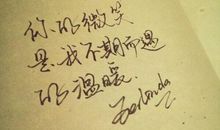 你的微笑
是我不期而遇
的温暖